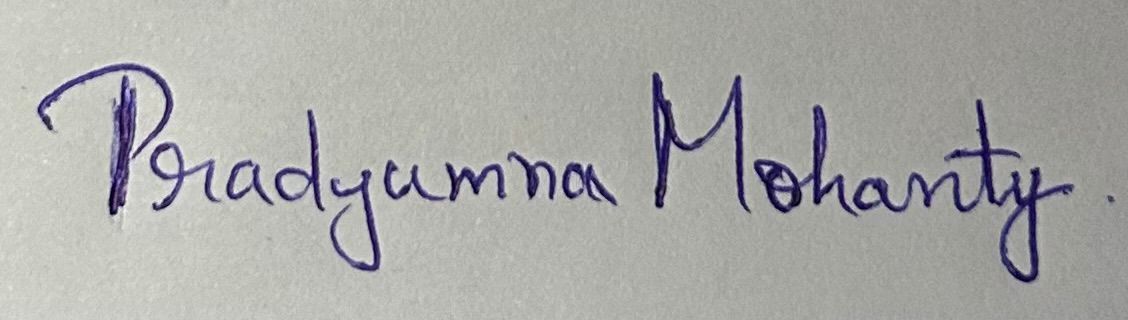 Pradyumna Mohanty.